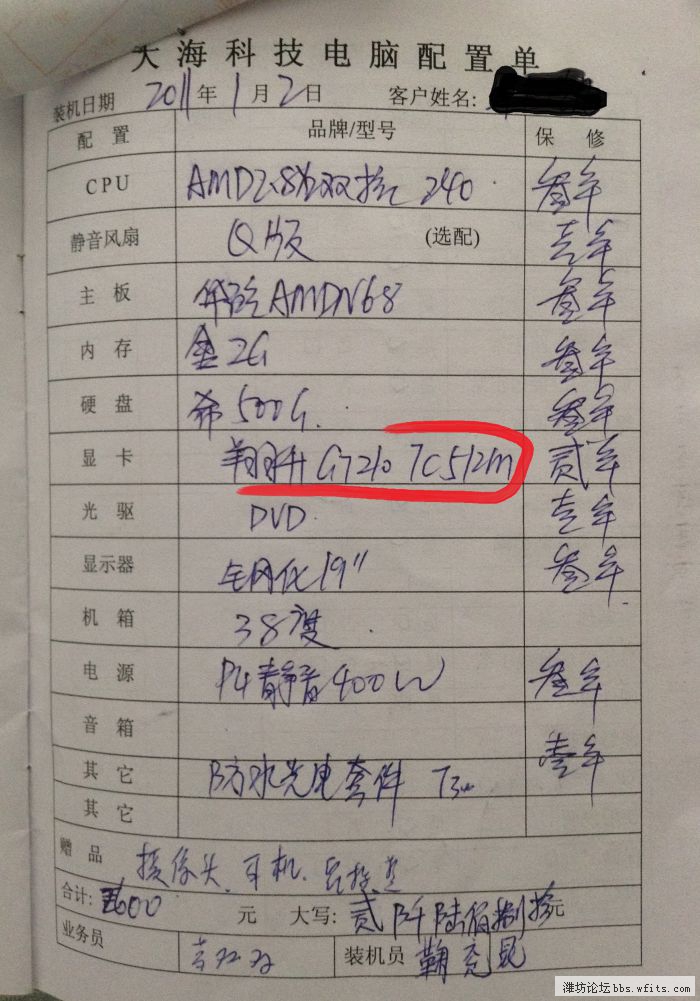 大海科技电脑配置单
装机日期 2011年1月2日 客户姓名:
配置 品牌/型号 保修
CPU AMD2.8G双核 240 叁年
静音风扇 Q版 (选配) 壹年
主板 AMDN68 叁年
内存 金2G 叁年
硬盘 希500G 叁年
显卡 翔升G210 TC512m 贰年
光驱 DVD 壹年
显示器 钢化19" 叁年
机箱 38度
电源 P4静音400W 叁年
音箱
其它 防水光电套件 壹年
其它
赠品 摄像头、耳机、
合计: 元 大写: 贰阡陆佰捌拾元
业务员 装机员
潍坊论坛bbs.wfits.com